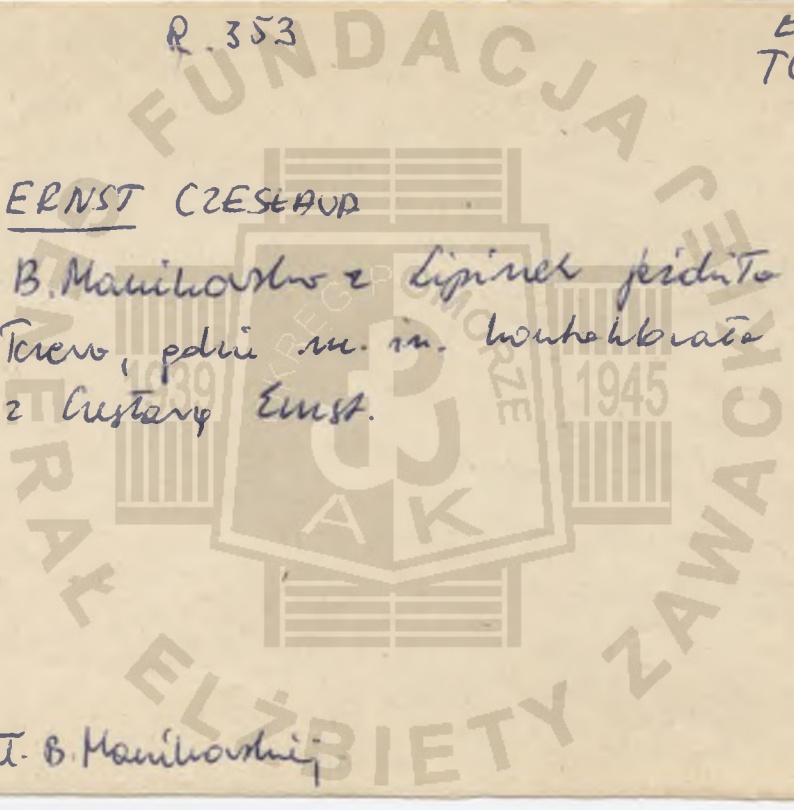 R. 353
TO
ERNST CZESŁAWA
B. Manikowska z Lipinek jeździła
Tczewa, gdzie m. in. kontaktowała
z Czesławą Ernst.
T. B. Manikowskiej
FUNDACJA GENERAŁ ELŻBIETY ZAWACKIEJ
OKRĘG POMORZE
1939 1945
AK